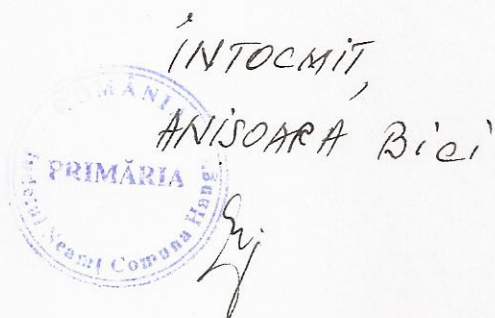 ÎNTOCMIT,
ANIȘOARA Bici
ROMÂNIA
PRIMĂRIA
Județul Neamț Comuna Hangu